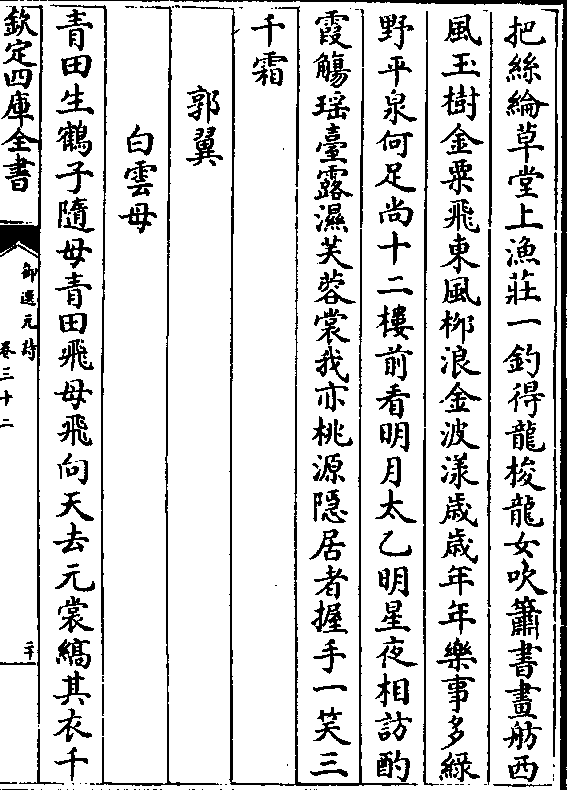 把絲綸草堂上漁莊一釣得龍梭龍女吹簫書畫舫西
風玉樹金粟飛東風柳浪金波漾歲歲年年樂事多綠
野平泉何足尚十二樓前看明月太乙明星夜相訪酌
霞觴瑶臺露濕芙蓉裳我亦桃源隱居者握手一笑三
千霜
郭翼
白雲母
青田生鶴子隨母青田飛母飛向天去元裳縞其衣千
欽定四庫全書
御選元詩
卷三十二
二十